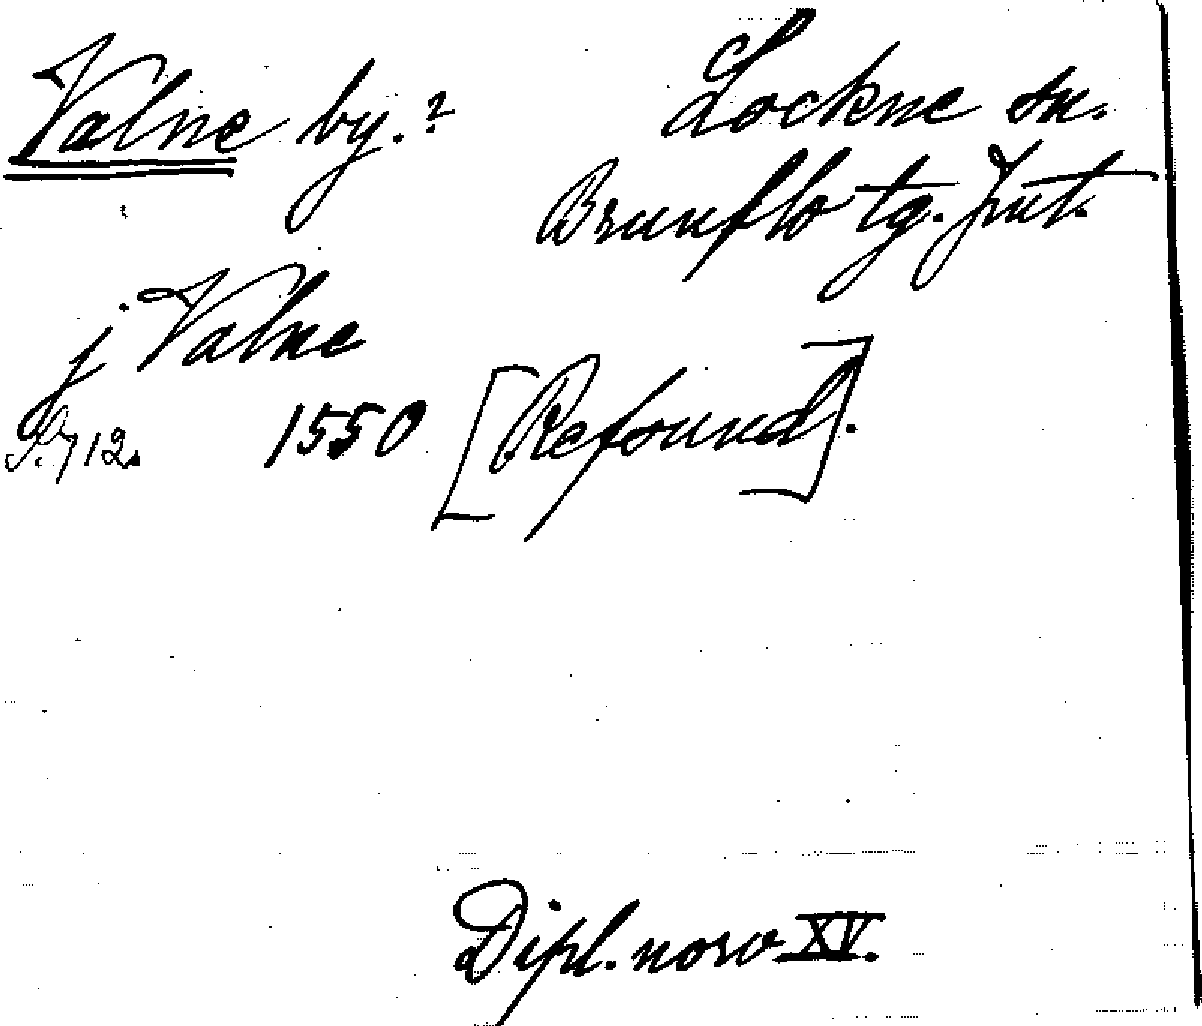 Valne by.? Lockne sn.
Brunflo tg. Jmt.
j Valne
S. 712. 1550 [Refsund].
Dipl. norv XV.